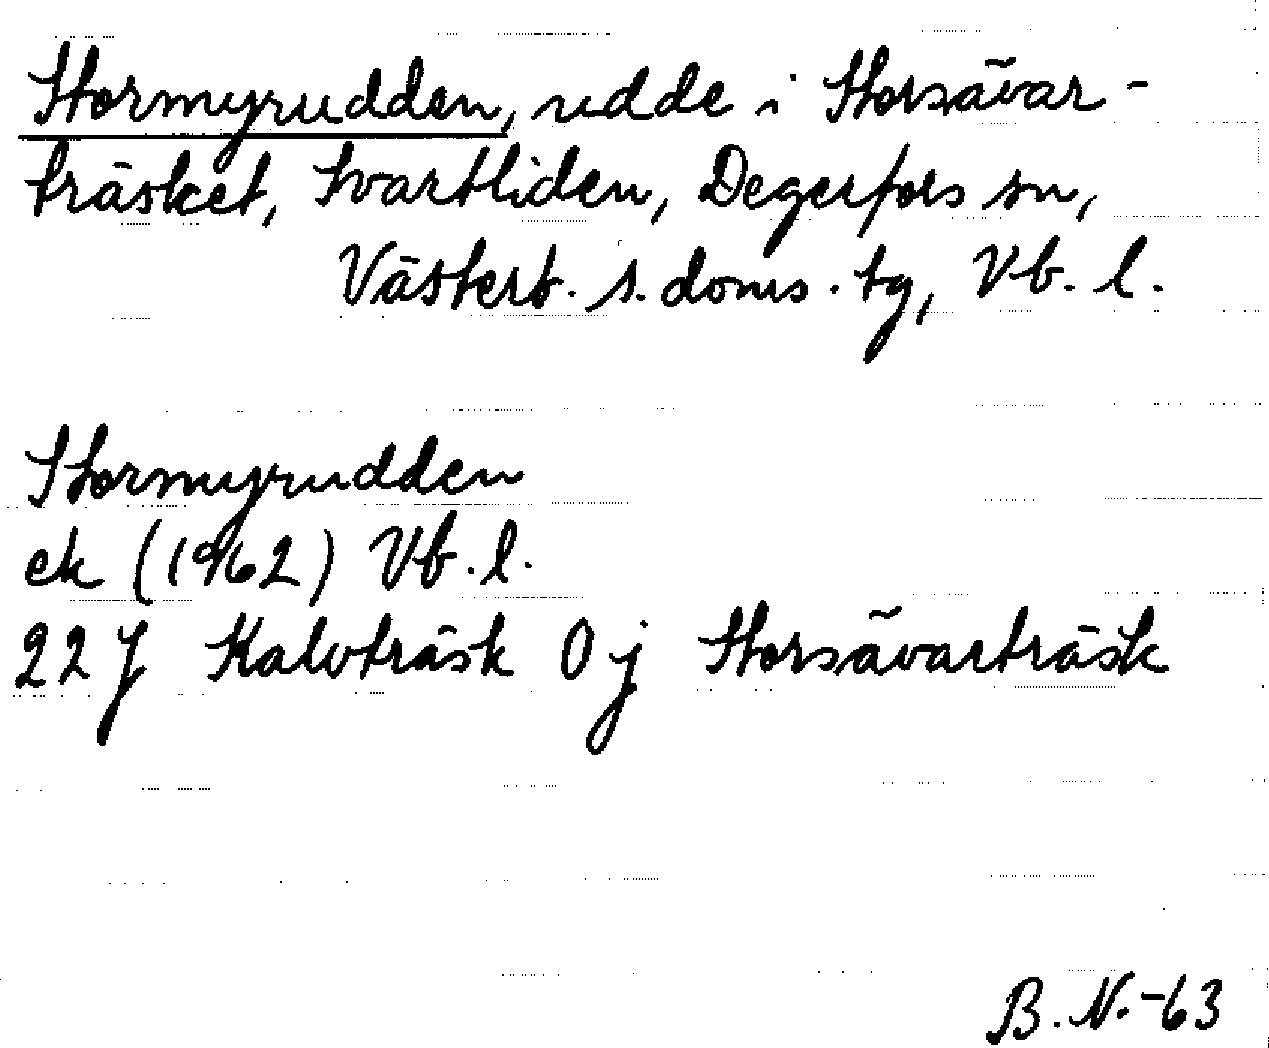 Stormyrudden, udde i Storsävar-
träsket, Svartliden, Degerfors sn,
Västerb. s. doms. tg, Vb. l.
Stormyrudden
ek (1962) Vb. l.
22 J Kalvträsk 0 j Storsävarträsk
B. N. -63